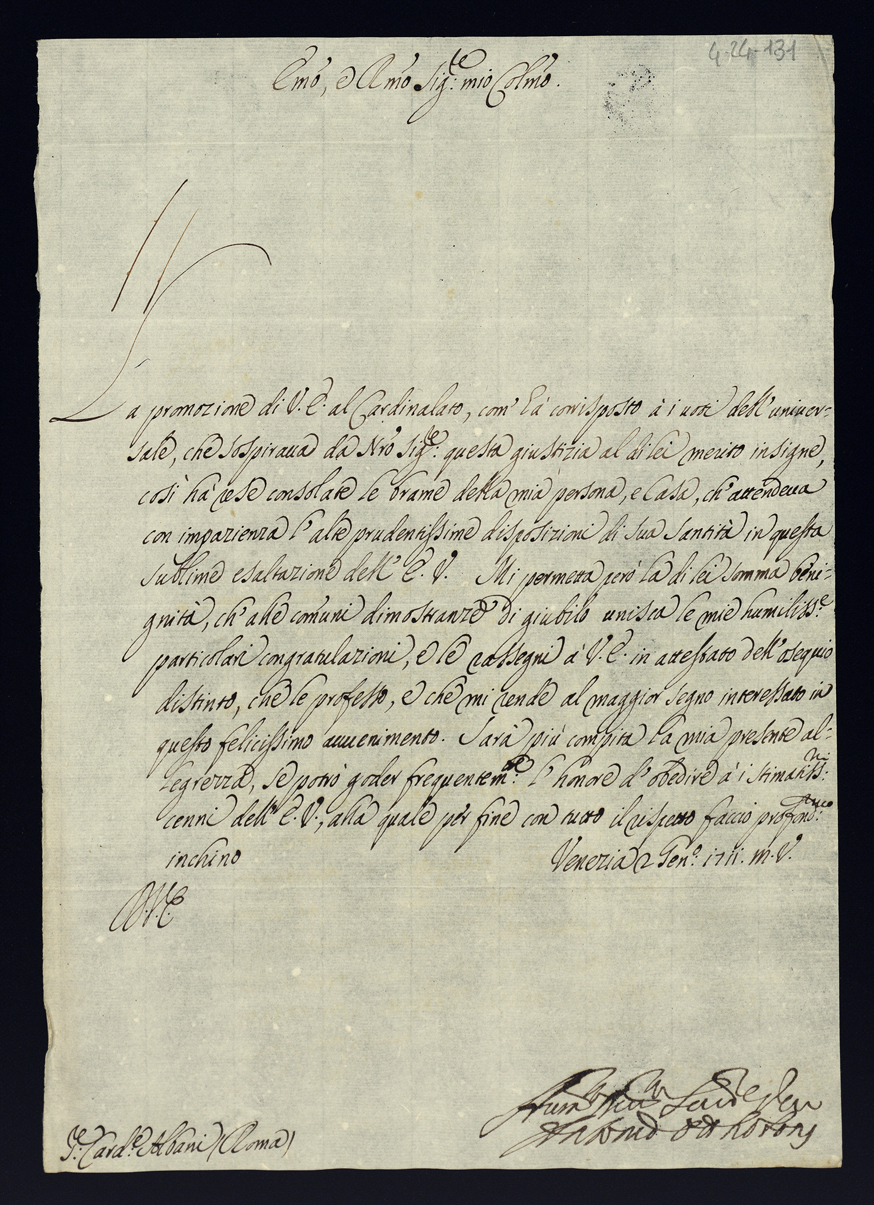 4-24-131
Emo, e Rmo Sig.re mio Colmo.
La promozione di V. E. al Cardinalato, com' hà corrisposto à i voti dell' univer-
sale, che sospiraua da Nro Sig.re questa giustizia al di lei merito insigne,
così hà rese consolate le brame della mia persona, e Casa, ch' attendeua
con impazienza l' alte prudentissime disposizioni di Sua Santità in questa
sublime esaltazione dell' E. V. Mi permetta però la di lei somma beni-
gnità, ch' alle comuni dimostranze di giubilo unisca le mie humiliss.e
particolari congratulazioni, e le rassegni à V. E. in attestato dell' osequio
distinto, che le professo, e che mi rende al maggior segno interessato in
questo felicissimo auuenimento. Sarà più compita la mia presente al-
legrezza, se potrò goder frequentem.te l' honore d' obedire à i stimatiss.mi
cenni dell' E. V., alla quale per fine con tutto il rispetto faccio profond.mo
inchino Venezia 2 Gen.o 1711. m. V.
D. V. E.
S.r Card.e Albani (Roma)
Antonio Otthoboni